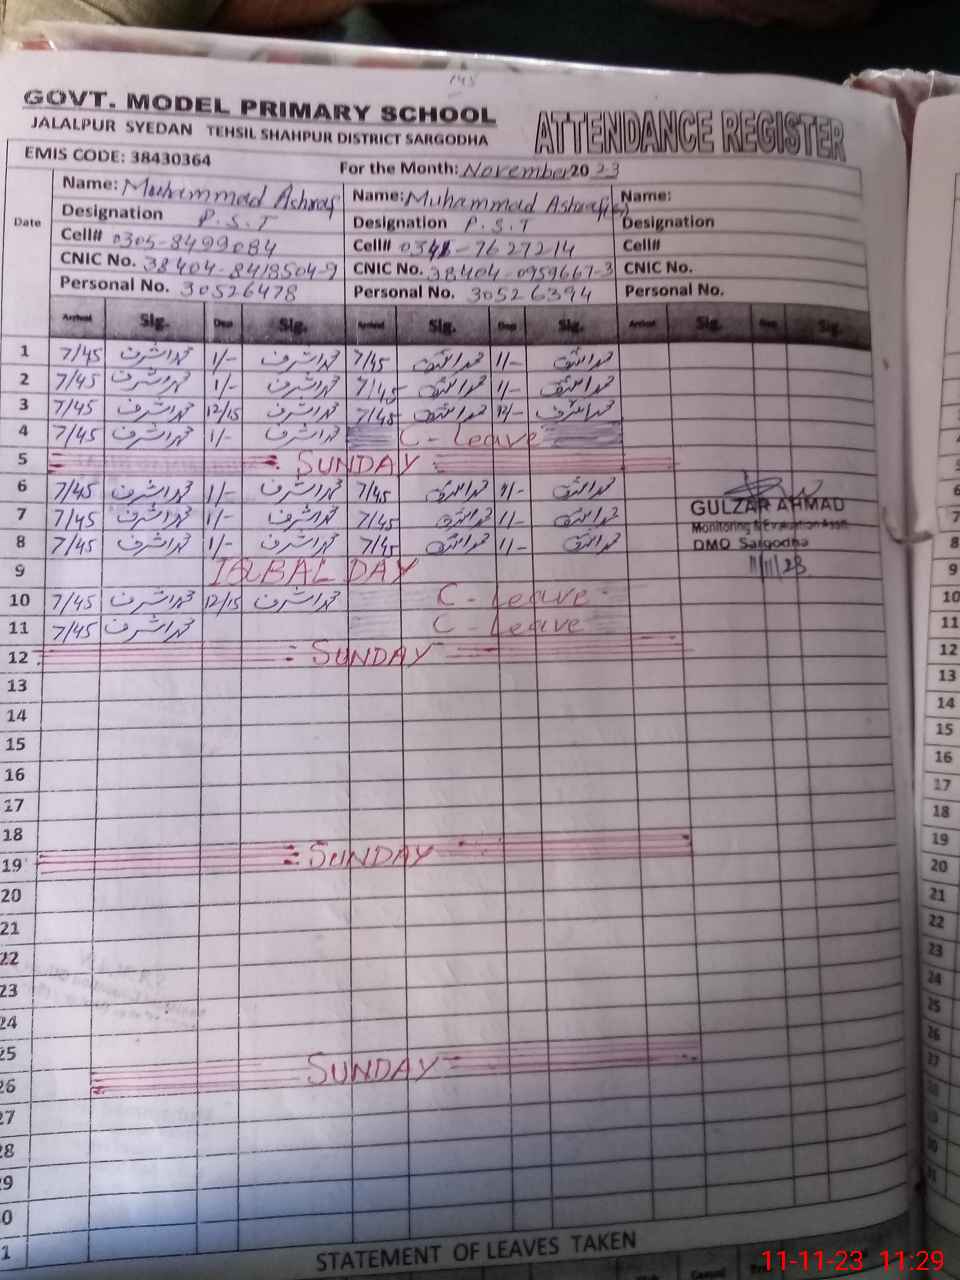 145
GOVT. MODEL PRIMARY SCHOOL
ATTENDANCE REGISTER
JALALPUR SYEDAN TEHSIL SHAHPUR DISTRICT SARGODHA
EMIS CODE: 38430364 For the Month: November 2023
Date
Name: Muhammad Ashraf Name: Muhammad Ashraf Name:
Designation P.S.T Designation P.S.T Designation
Cell# 0305-8499084 Cell# 0341-7627214 Cell#
CNIC No. 38404-8418504-9 CNIC No. 38404-0959667-3 CNIC No.
Personal No. 30526478 Personal No. 30526394 Personal No.
Arrival Sig. Dept Sig. Arrival Sig. Dept Sig. Arrival Sig. Dept Sig.
1 7/45 محمد اشرف 1/- محمد اشرف 7/45 محمد اشرف 1/- محمد اشرف
2 7/45 محمد اشرف 1/- محمد اشرف 7/45 محمد اشرف 1/- محمد اشرف
3 7/45 محمد اشرف 12/15 محمد اشرف 7/45 محمد اشرف محمد اشرف
4 7/45 محمد اشرف 1/- محمد اشرف C - Leave
5 SUNDAY
6 7/45 محمد اشرف 1/- محمد اشرف 7/45 محمد اشرف 1/- محمد اشرف
7 7/45 محمد اشرف 1/- محمد اشرف 7/45 محمد اشرف 1/- محمد اشرف
8 7/45 محمد اشرف 1/- محمد اشرف 7/45 محمد اشرف 1/- محمد اشرف
GULZAR AHMAD
Monitoring & Evaluation Asstt.
DMO Sargodha
11/11/23
9 IQBAL DAY
10 7/45 محمد اشرف 12/15 محمد اشرف C - Leave
11 7/45 محمد اشرف C - Leave
12 SUNDAY
13
14
15
16
17
18
19 SUNDAY
20
21
22
23
24
25
26 SUNDAY
27
28
29
30
31
STATEMENT OF LEAVES TAKEN
7
8
9
10
11
12
13
14
15
16
17
18
19
20
21
22
23
24
25
26
27
28
29
30
31
11-11-23 11:29